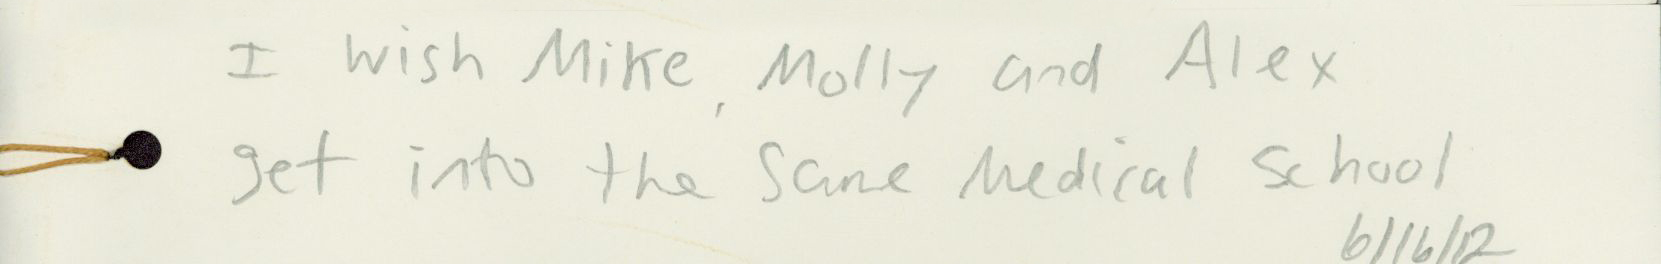 I wish Mike, Molly and Alex
get into the Same Medical School
6/16/12